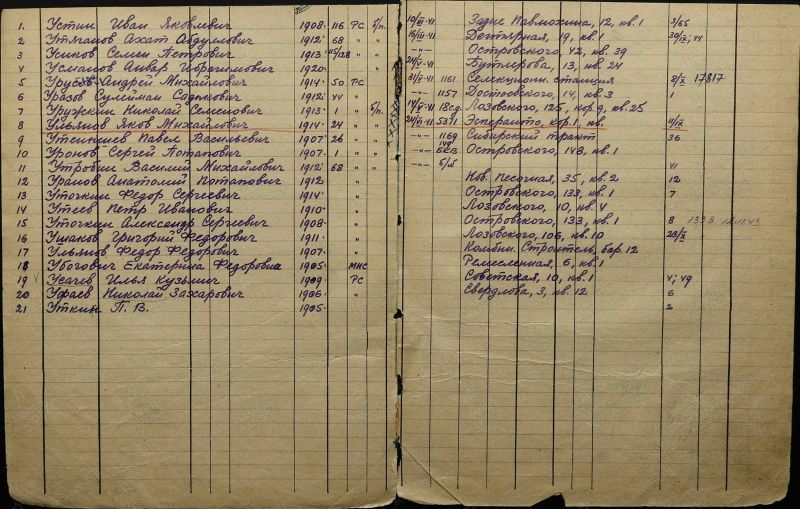 1. Устин Иван Яковлевич 1908 116 РС б/п. 10/III-41 Задис Павлюхина, 12, кв. 1 3/65
2. Утяганов Ахат Абдулович 1912 68 " " 16/III-41 Дегтярная, 19, кв. 1
3 Усиков Семен Петрович 1913 " " -"- Островского, 42, кв. 39
4 Усманов Анвар Ибрагимович 1920 " " 24/V-41 Бутлерова, 13, кв. 24
5 Урусов Андрей Михайлович 1914 50 РС " 31/V-41 1161 Селекционн. станция 2/X 17817
6 Уразов Сулейман Садыкович 1912 44 " " -"- 1157 Достоевского, 14, кв. 3 1
7 Уружкин Николай Семенович 1913 1 " б/п. 18сд. Лозовского, 125, кор. 9, кв. 25
8 Ульянов Яков Михайлович 1914 24 " " 24/VI-41 5371 Эсперанто, кор. 1, кв. 11/IX
9 Утешишев Павел Васильевич 1907 26 " " -"- 1169 Сибирский тракт 36
10 Уронов Сергей Потапович 1907 1 " " -"- Островского, 148, кв. 1
11 Утробин Василий Михайлович 1912 68 " " -"- б/б VI
12 Уранов Анатолий Потапович 1912 " Нов. Песочная, 35, кв. 2 12
13 Уточкин Федор Сергеевич 1914 " Островского, 138, кв. 1 7
14 Утеев Петр Иванович 1910 " Лозовского, 10, кв. 4
15 Уточкин Александр Сергеевич 1908 " Островского, 133, кв. 1 8 1338
16 Ушаков Григорий Федорович 1911 " Лозовского, 106, кв. 10 23/X
17 Ульянов Федор Федорович 1907 " Комбин. Строитель, бар. 12
18 Убогович Екатерина Федоровна 1905 МНС Ремесленная, 6, кв. 1
19 Усачев Илья Кузьмич 1909 РС Советская, 10, кв. 1 V; V9
20 Уфаев Николай Захарович 1906 " Свердлова, 3, кв. 12 6
21 Уткин П. В. 1905 2